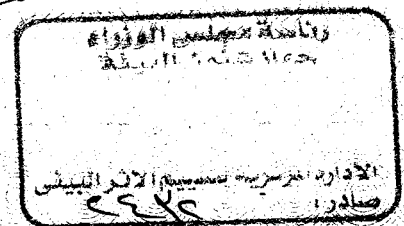 رئاسة مجلس الوزراء
جهاز شئون البيئة
الادارة المركزية لتقييم الاثر البيئى
صادر :